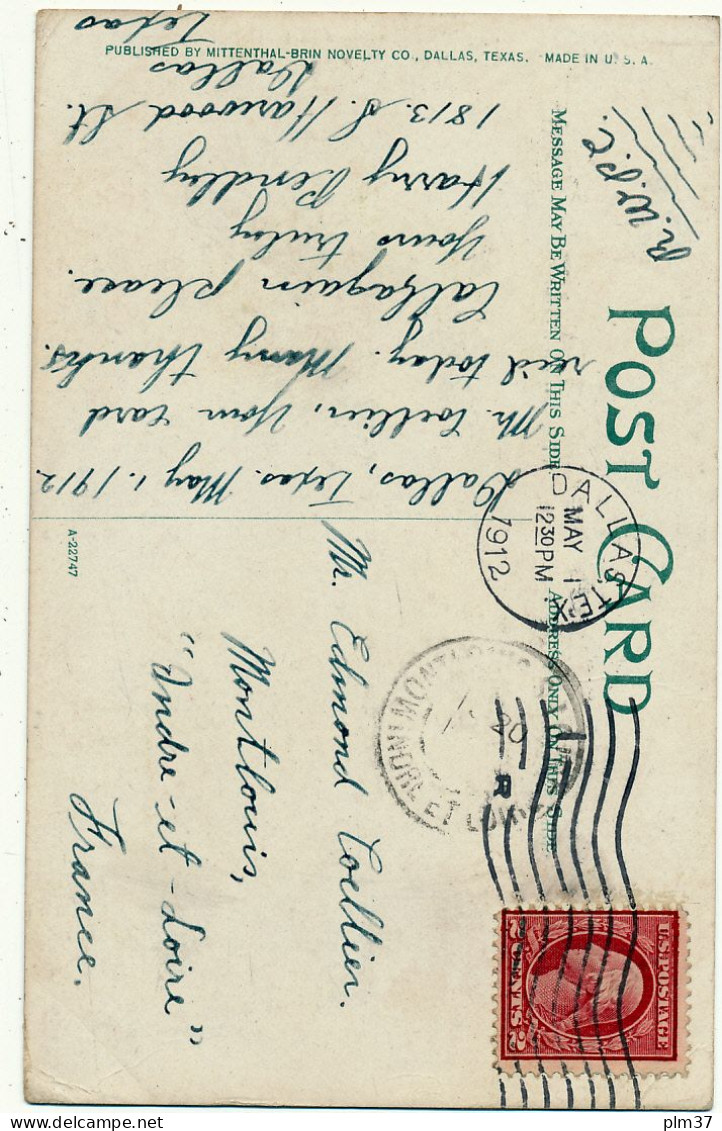 PUBLISHED BY MITTENTHAL-BRIN NOVELTY CO., DALLAS, TEXAS. MADE IN U. S. A.
R.W.P.C.
POST CARD
MESSAGE MAY BE WRITTEN ON THIS SIDE
ADDRESS ONLY ON THIS SIDE
Dallas, Texas. May 1. 1912.
Mr. Coellier, Your card
rec'd today. Many thanks.
Call again please.
Yours truly
Harry Pendley
1813. S. Harwood St.
Dallas
Texas
A-22747
DALLAS, TEX
MAY 1
12 30 PM
1912
INDRE ET LOIRE
20
Mr. Edmond Coellier.
Montlouis,
"Indre-et-Loire"
France.
U.S. POSTAGE
2 CENTS 2
plm37